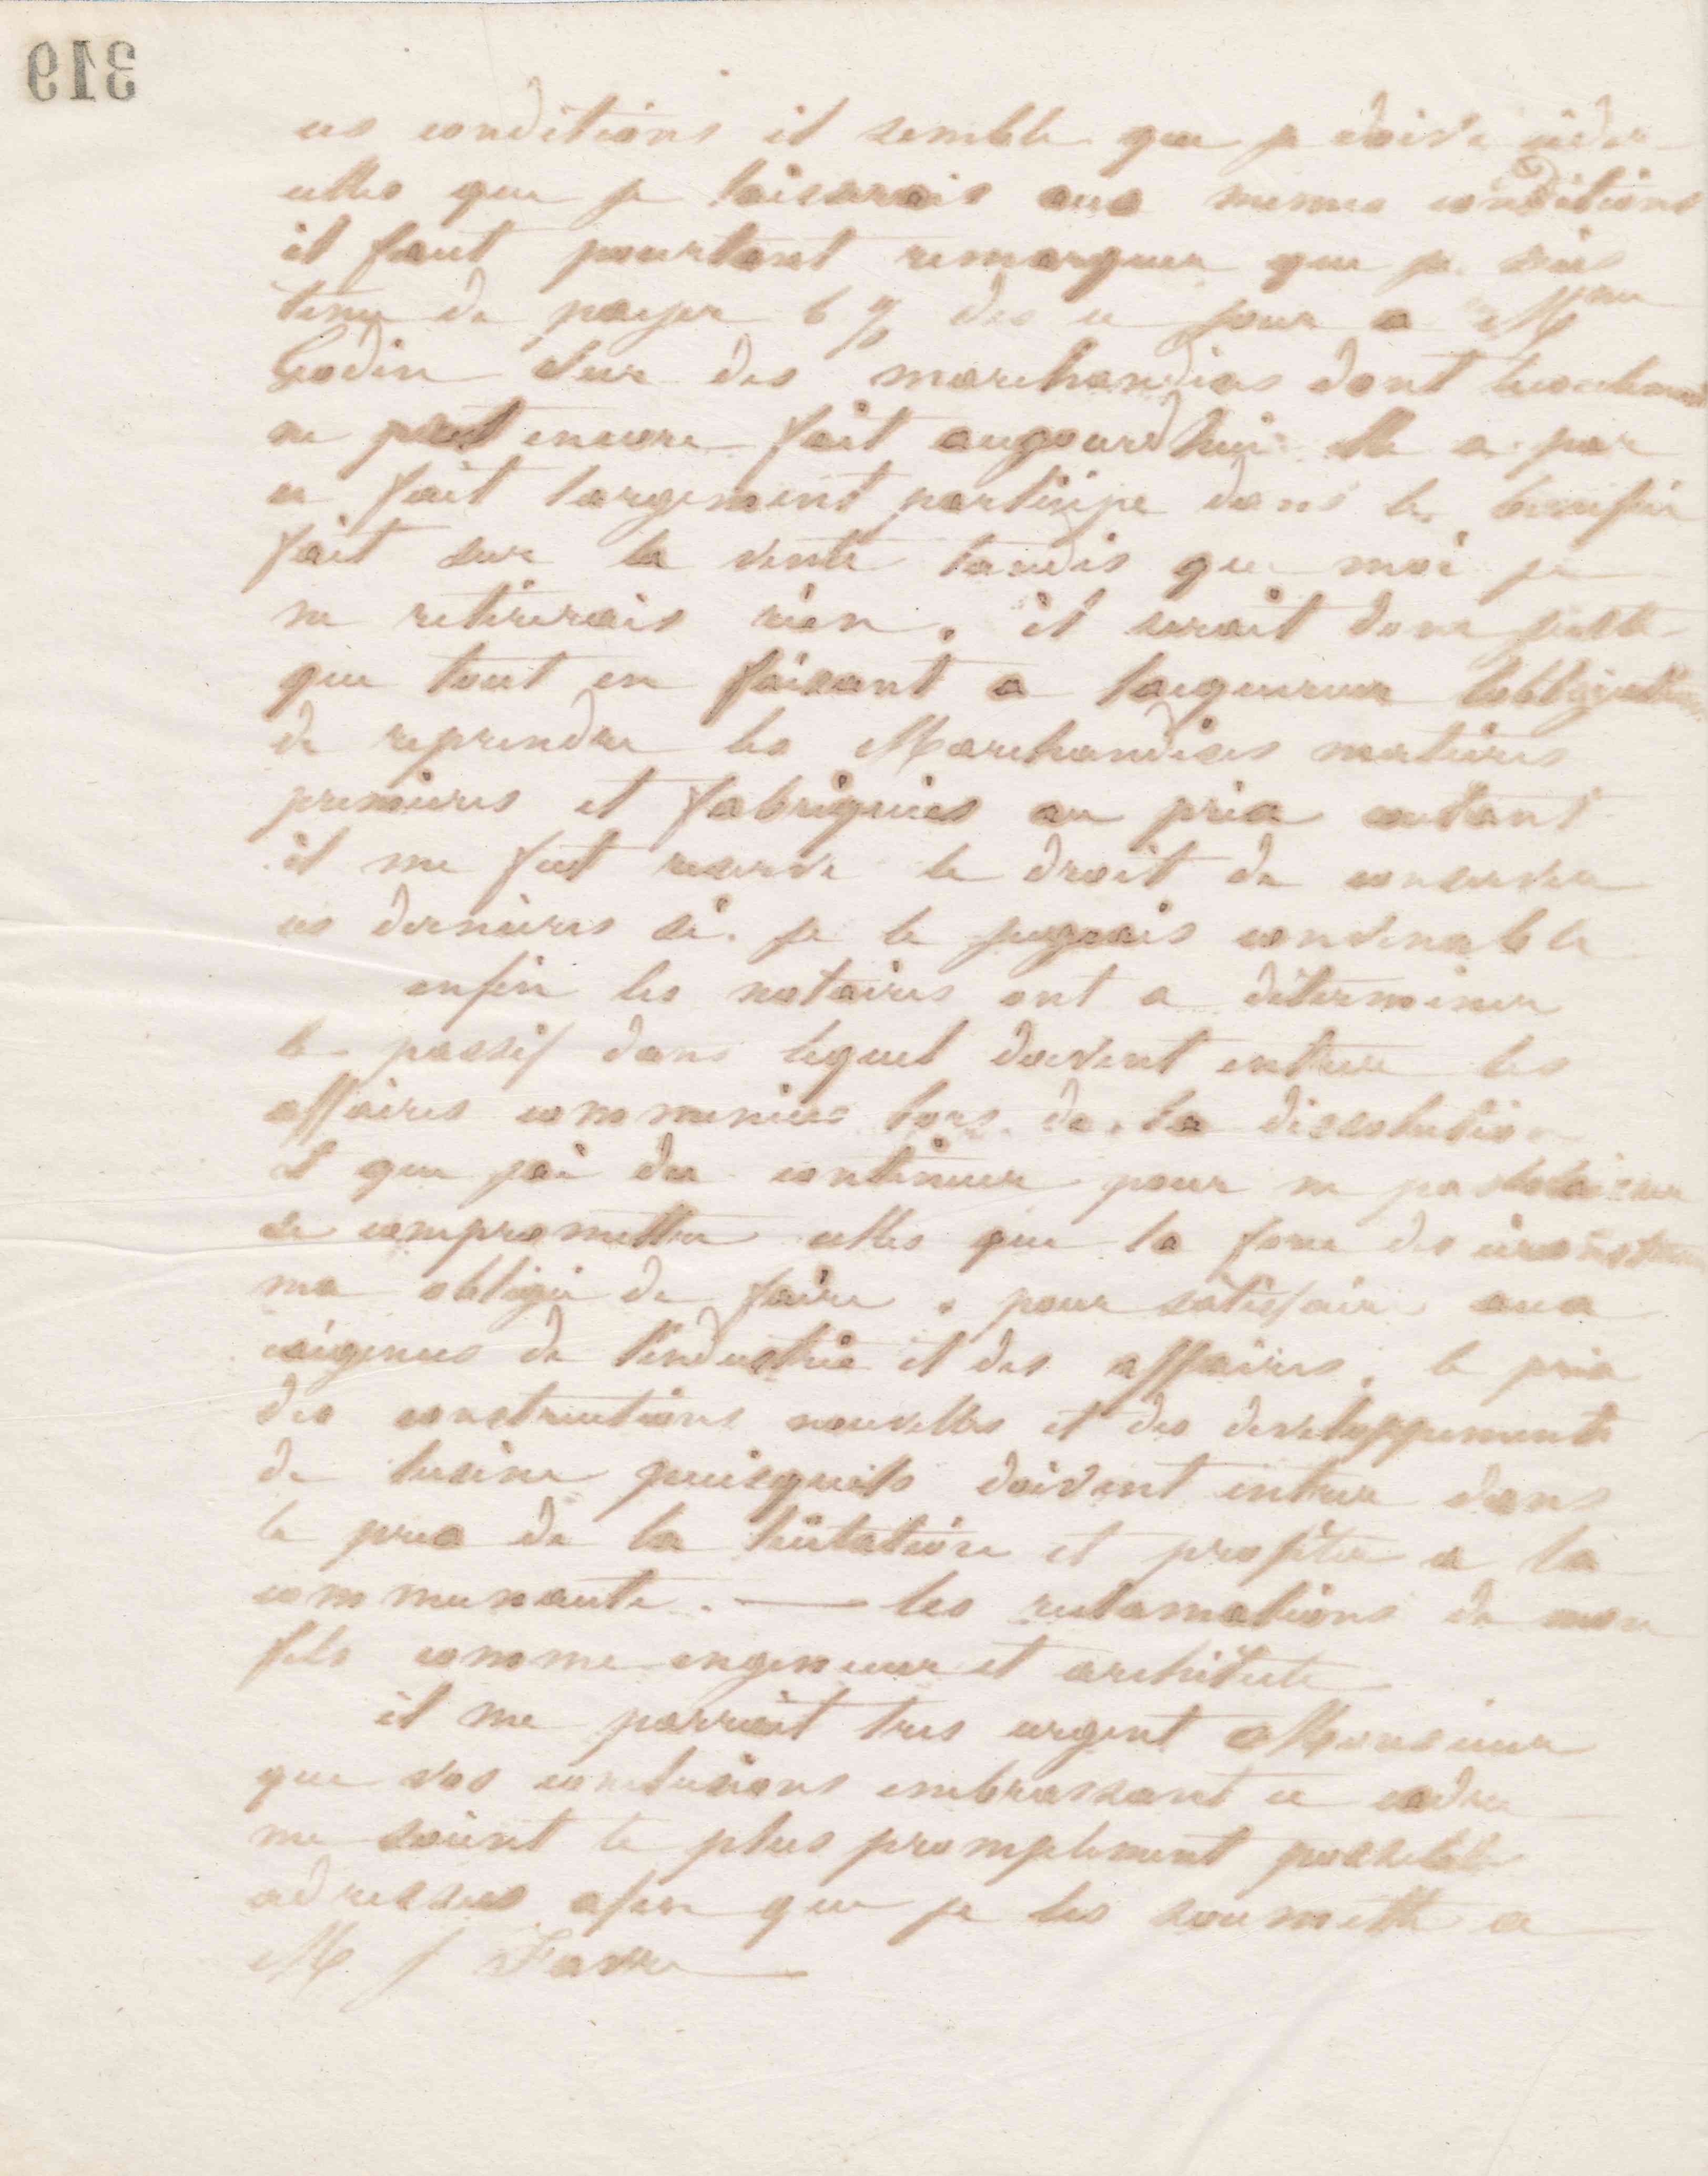 319
ces conditions il semble que je doive céder
celles que je laisserais aux memes conditions
il faut pourtant remarquer que je suis
tenu de payer 6 % des ce jour a Mme
Godin sur des marchandises dont
ne peut encore fait augourdhui elle a par
ce fait largement participe dans le benefice
fait sur la vente tandis que moi je
ne retirerais rien. il serait donc juste
que tout en faisant a lacquereur lobligation
de reprendre les Marchandises matieres
premieres et fabriquées au prix coutant
il me fut reservé le droit de conserver
ces dernieres si je le jugeais convenable
enfin les notaires ont a déterminer
le passif dans lequel doivent entrer les
affaires commencées lors de la dissolution
et que jai du continuer pour ne pas
se compromettre celles que la force des circonstances
ma obligé de faire. pour satisfaire aux
exigences de lindustrie et des affaires. le prix
des constructions nouvelles et des developpements
de lusine puisquils doivent entrer dans
le prix de la licitation et profiter a la
communauté. — les reclamations de mon
fils comme ingenieur et architecte
il me parrait tres urgent Monsieur
que vos conclusions embrassant ce cadre
me soient le plus promptement possible
adressees afin que je les soumette a
M J Favre